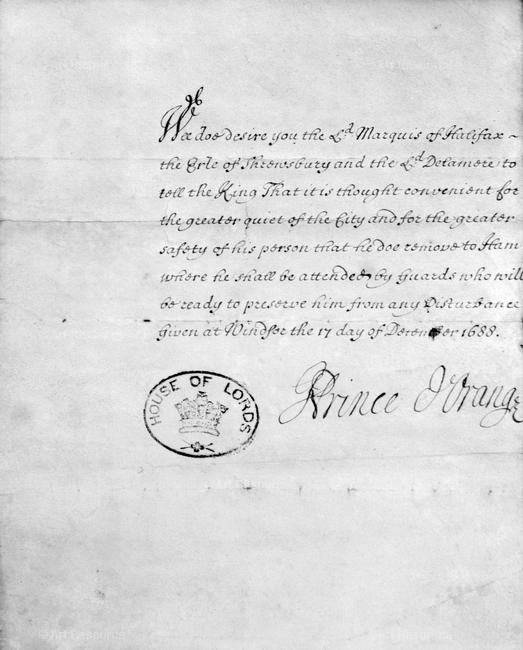 We doe desire you the Ld Marquis of Halifax ~
the Erle of Shrewsbury and the Ld Delamere to
tell the King That it is thought convenient for
the greater quiet of the City and for the greater
safety of his person that he doe remove to Ham
where he shall be attended by Guards who will
be ready to preserve him from any Disturbance
Given at Windsor the 17 day of December 1688.
Prince d'Orange
HOUSE OF LORDS